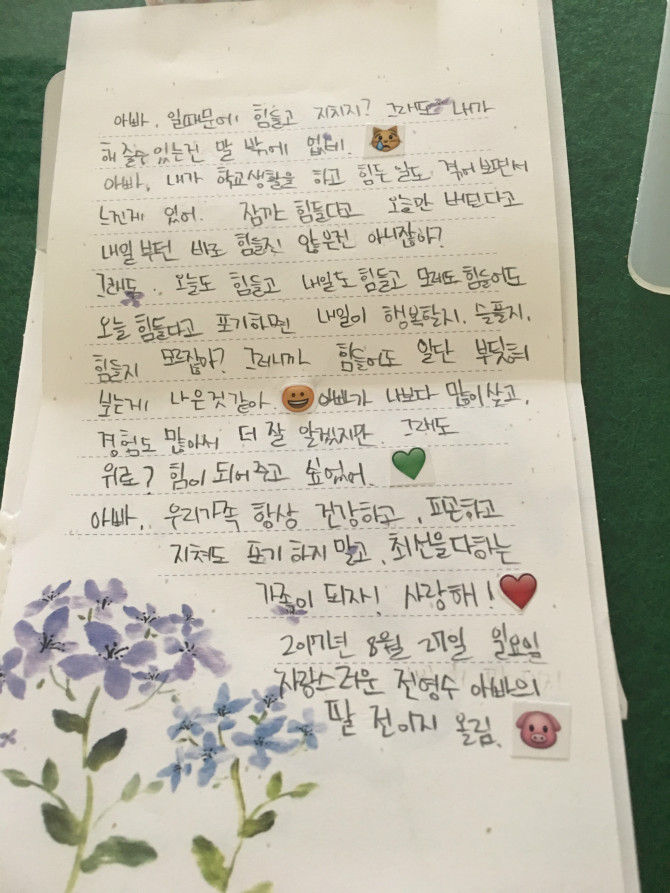 아빠. 일때문에 힘들고 지치지? 그래도 내가
해 줄수 있는건 말 밖에 없네.
아빠, 내가 학교생활을 하고 힘든 날도 겪어보면서
느낀게 있어. 잠깐 힘들다고 오늘만 버틴다고
내일부턴 바로 힘들진 않은건 아니잖아?
그래도. 오늘도 힘들고 내일도 힘들고 모레도 힘들어도
오늘 힘들다고 포기하면 내일이 행복할지. 슬플지.
힘들지 모르잖아? 그러니까 힘들어도 일단 부딪혀
보는게 나은것같아. 아빠가 나보다 많이살고,
경험도 많아서 더 잘 알겠지만 그래도
위로? 힘이 되어주고 싶었어.
아빠, 우리가족 항상 건강하고, 피곤하고
지쳐도 포기 하지 말고, 최선을다하는
가족이 되자! 사랑해!
2017년 8월 27일 일요일
자랑스러운 전영수 아빠의
딸 전이지 올림.